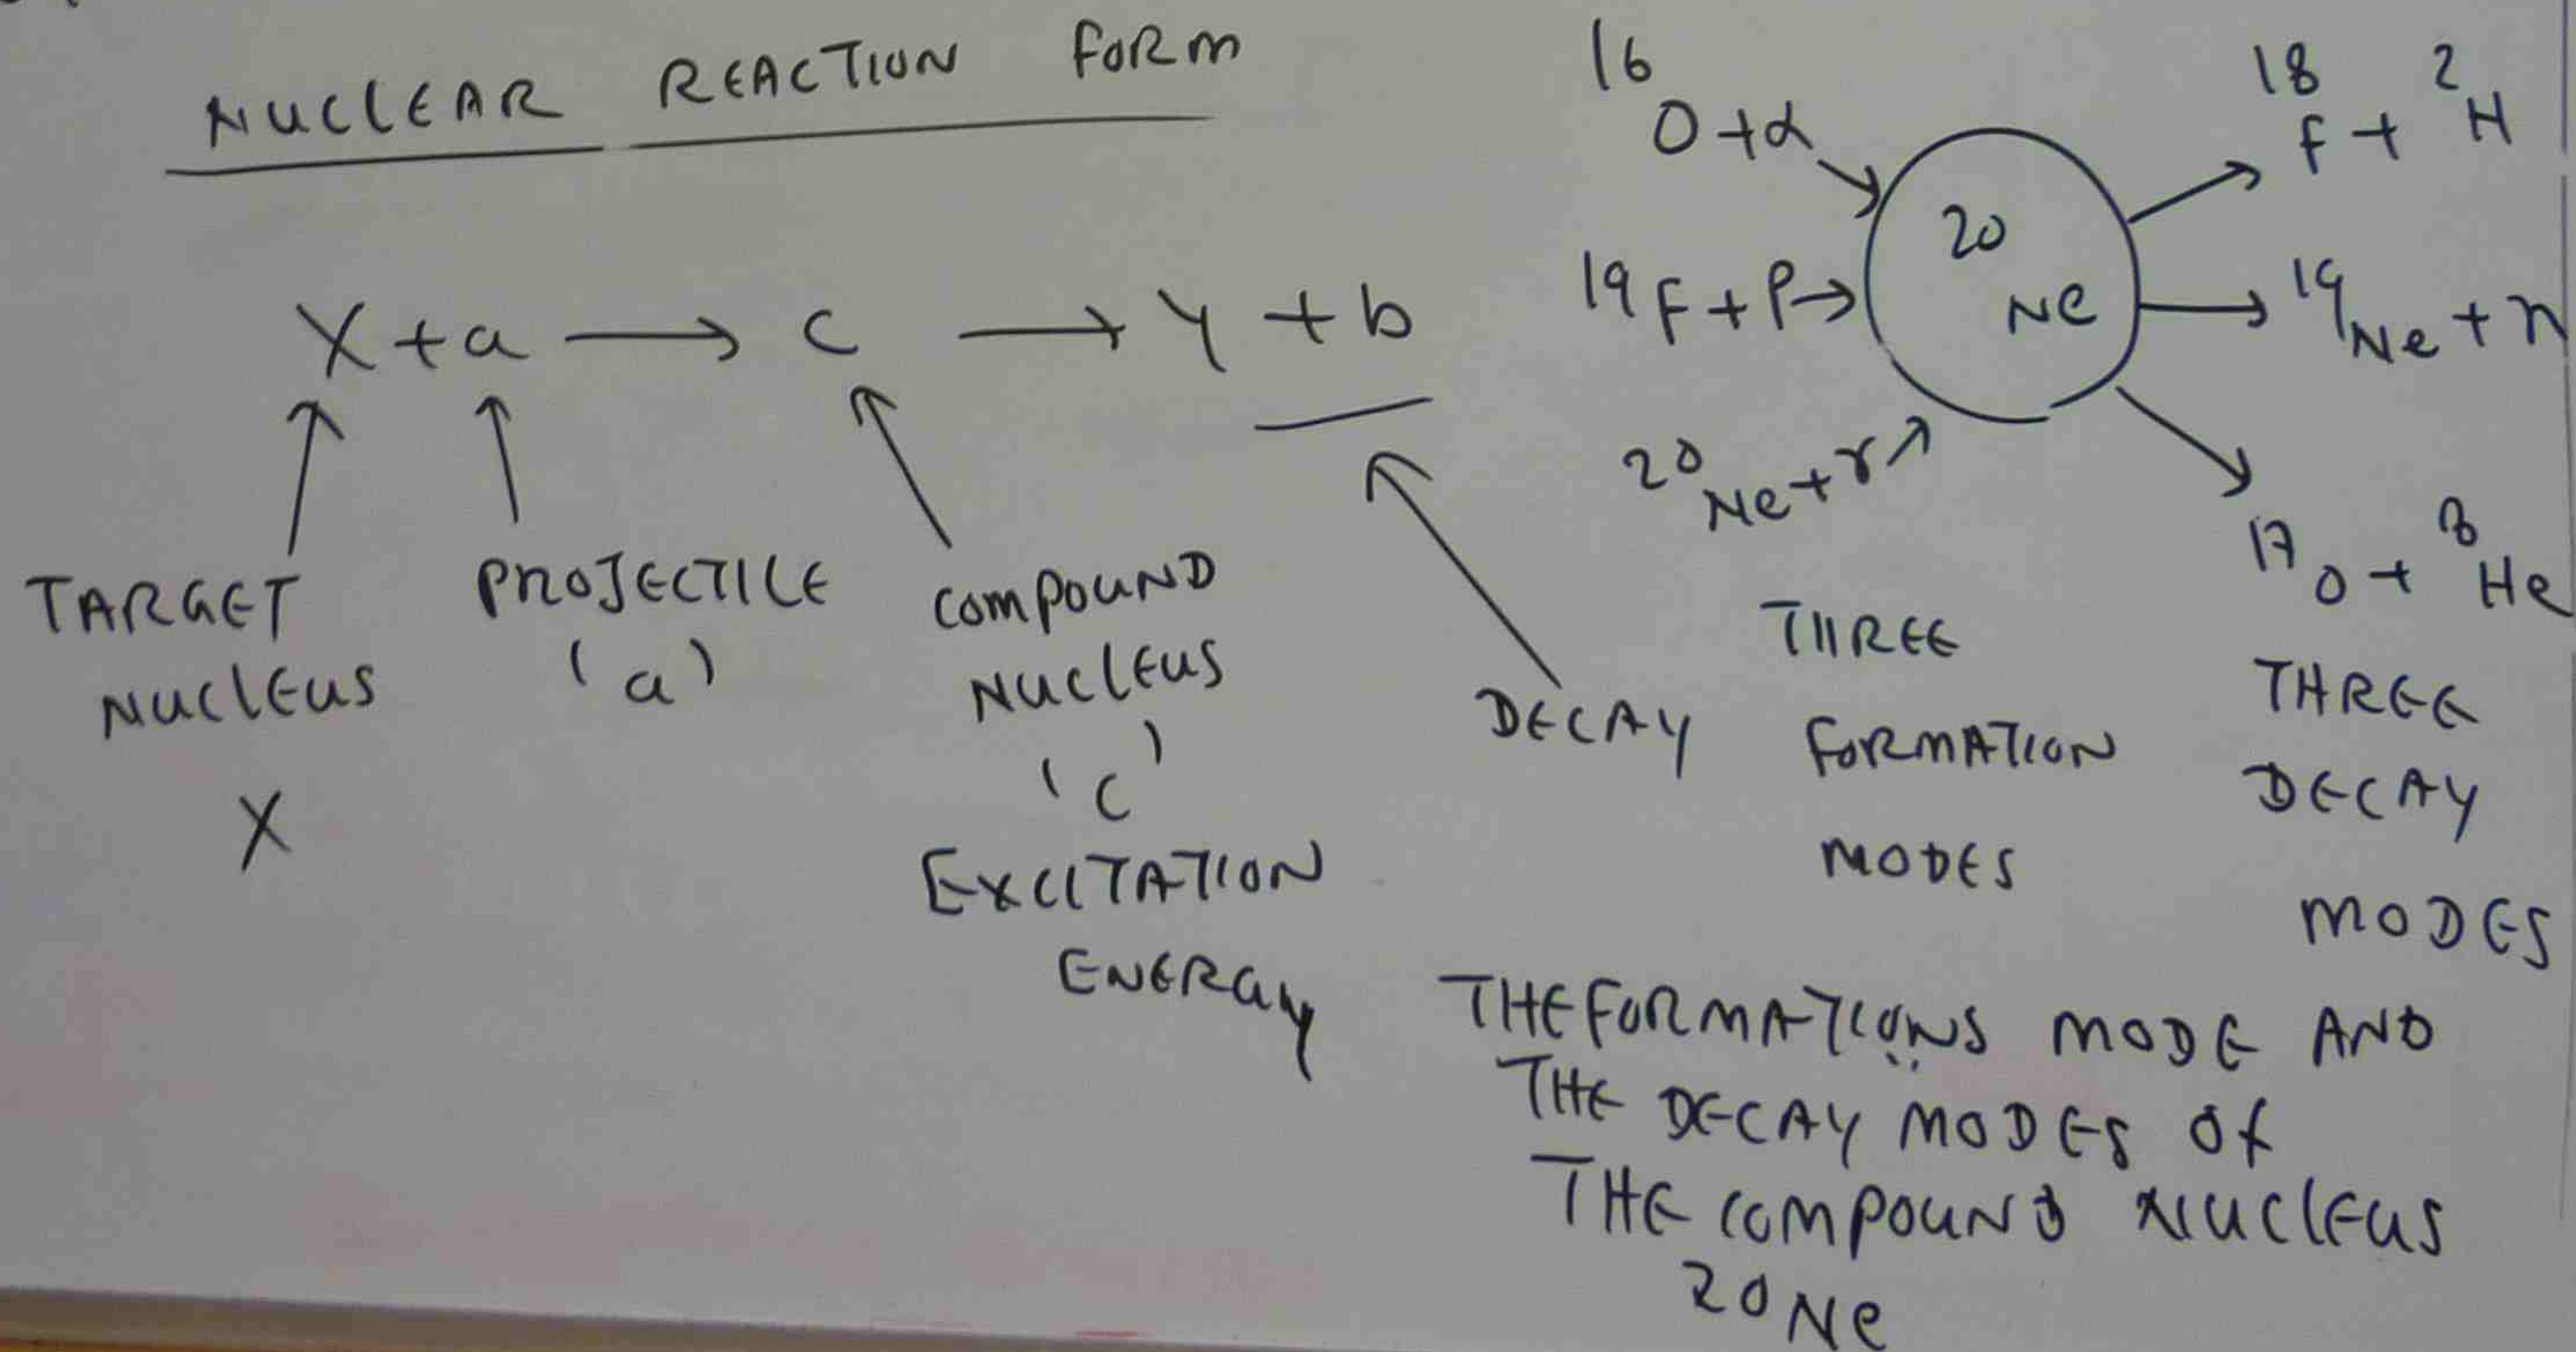 NUCLEAR REACTION FORM
X + a → c → Y + b
TARGET
NUCLEUS
X
PROJECTILE
(a)
COMPOUND
NUCLEUS
'c'
EXCITATION
ENERGY
DECAY
16
O + α
19 F + P →
20
Ne + γ
20
Ne
18 2
F + H
19
Ne + n
17 3
O + He
THREE
FORMATION
MODES
THREE
DECAY
MODES
THE FORMATIONS MODE AND
THE DECAY MODES OF
THE COMPOUND NUCLEUS
20 Ne